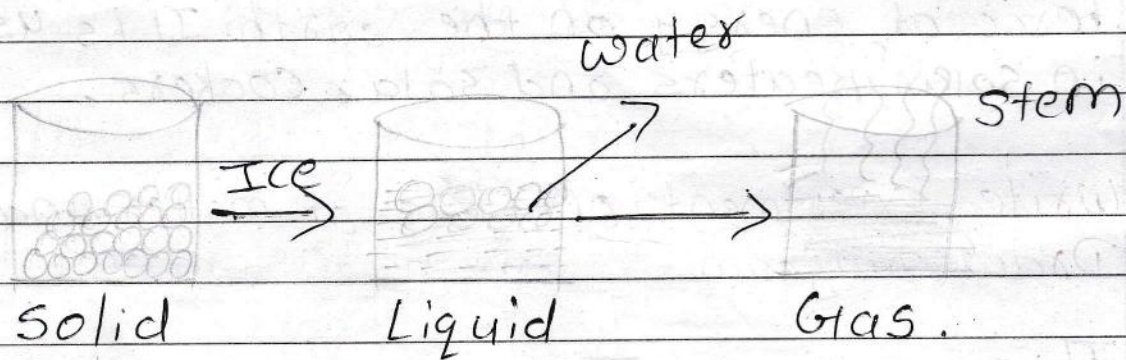 water
Stem
Ice
Solid Liquid Gas.